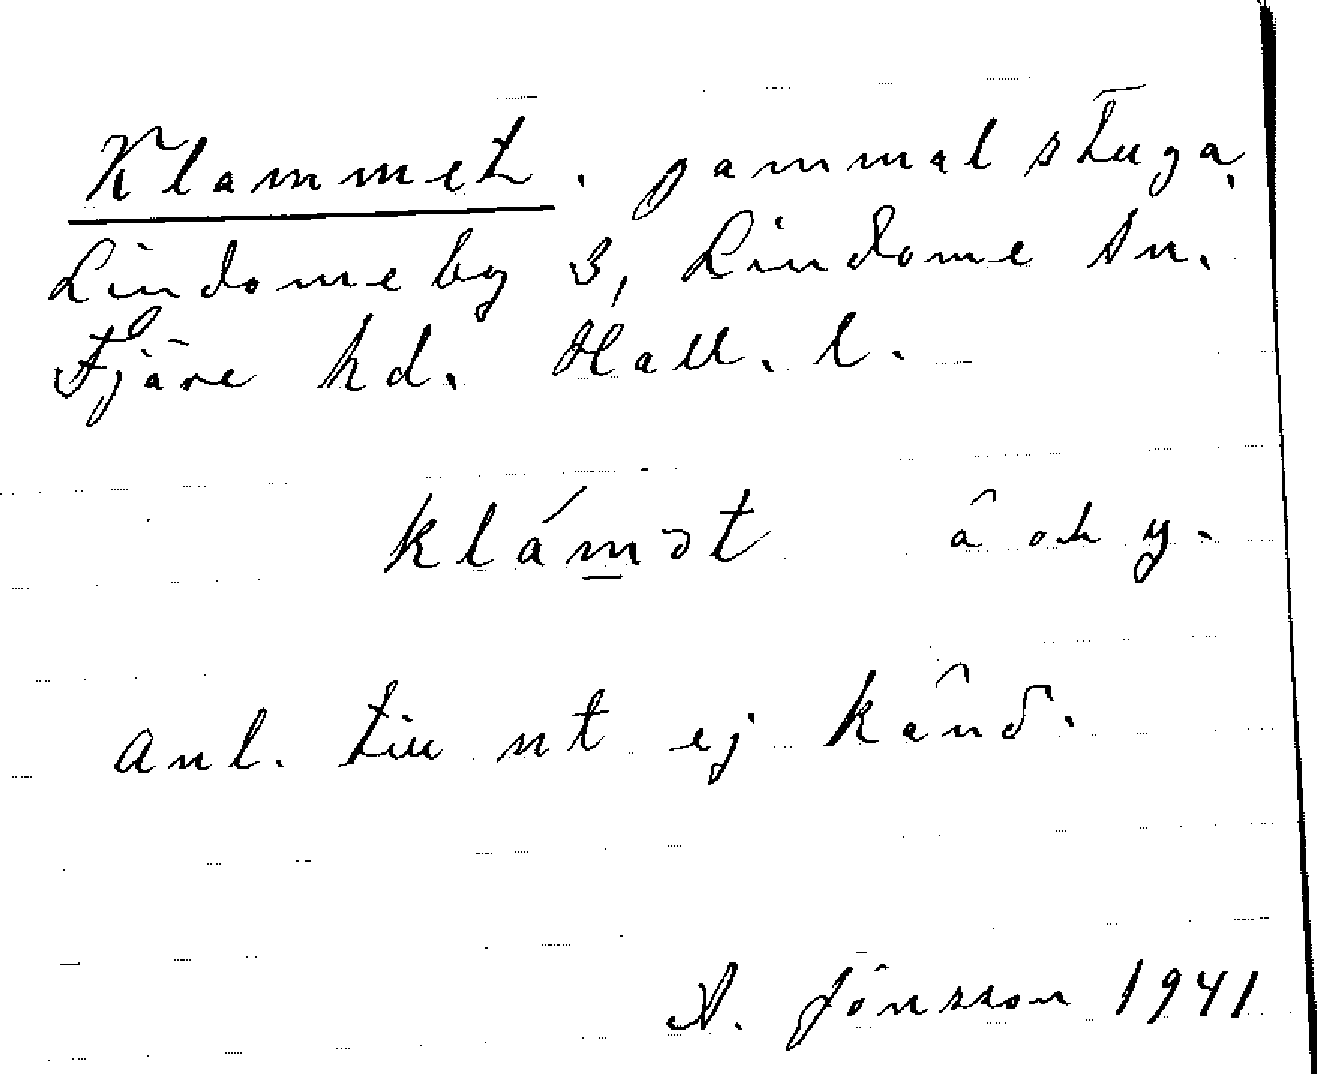 Klammet. gammal stuga.
Lindomeby 3, Lindome sn.
Fjäre hd. Hall. l.
klámət â och y.
Anl. till nt ej känd.
A. Jönsson 1941